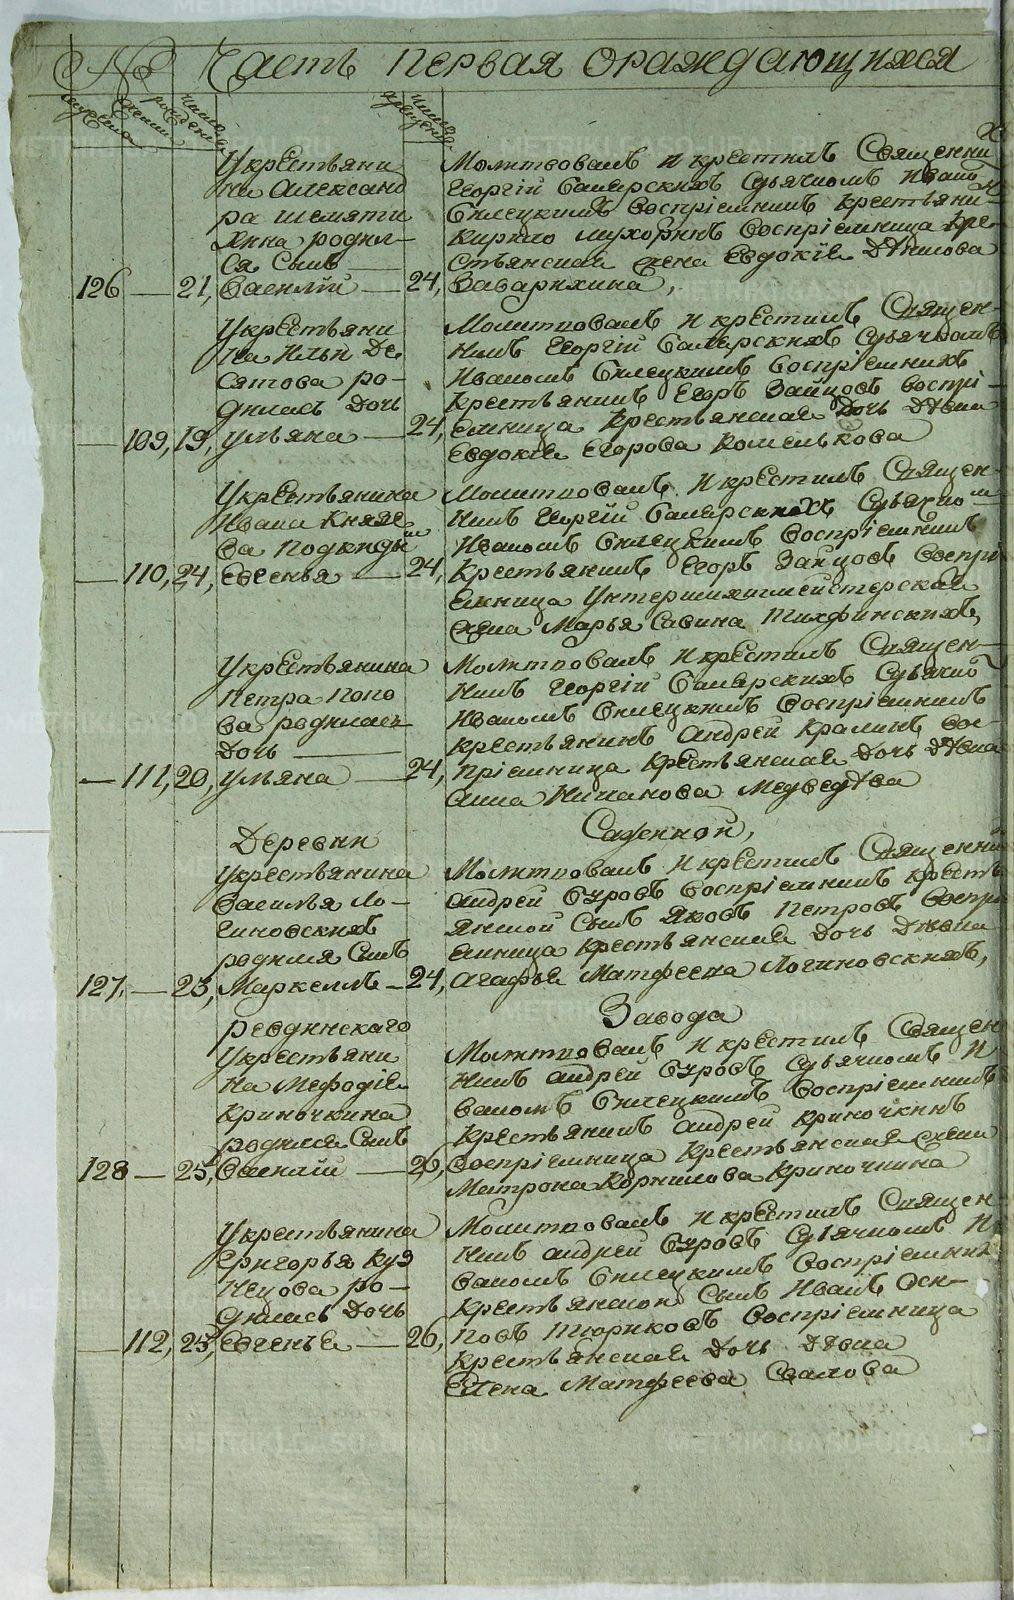 № Часть первая ораждающихся
мужеска
женска
число рождения
число крещения
Укрестьяни
на Александ
ра шемяти
хина родил-
ся Сынъ
126 — 21, Василiй — 24,
Молитвовалъ и крестилъ Священни
Георгiй Самарскихъ Сдьячкомъ Ивано
Силецкимъ Воспрiемникъ крестьяни-
Кирило мухоринъ Воспрiемница кре-
стьянская жена Евдокiя Данилова
Заварихина,
Укрестьяни
на Ильи Де
сятова ро-
дилась Дочь
— 109, 19, ульяна — 24,
Молитвовалъ и крестилъ Священ-
никъ Георгiй Самарскихъ Сдьячкомъ
Иваномъ Силецкимъ Воспрiемникъ
Крестьянинъ Егоръ Зайцовъ Воспрi-
емница Крестьянская Дочь Дѣвка
Евдокiя Егорова Комелькова
Укрестьянина
Ивана Князе
ва Подкиды
— 110, 24, Евгенья — 24,
Молитвовалъ и крестилъ Священ-
никъ Георгiй Самарскихъ Сдьячко
Иваномъ Силецкимъ Воспрiемникъ
Крестьянинъ Егоръ Зайцовъ Воспрi
емница Унтершихтмейстерская
жена Марья Савина Тихфинскихъ,
Укрестьянина
Петра Попо
ва родилась
Дочь
— 111, 20, ульяна — 24,
Молитвовалъ и крестилъ Священ-
никъ Георгiй Самарскихъ Сдьячко
Иваномъ Силецкимъ Воспрiемникъ
крестьянинъ Андрей Кралинъ вос-
прiемница Крестьянская Дочь Дѣвка
Анна Ничанова Медведѣва
Деревни Саженной,
Укрестьянина
Василья Ло-
гиновскихъ
родился Сынъ
127, — 23, Маркеллъ — 24,
Молитвовалъ и крестилъ Священни
андрей Суровъ Воспрiемникъ кресть
янской Сынъ Яковъ Петровъ Воспрi
емница Крестьянская Дочь Дѣвка
Агафья Матфеева Логиновскихъ,
ревдинскаго Завода
Укрестьяни
на Мефодiя
Криночкина
родился Сынъ
128 — 25, Василiй — 26,
Молитвовалъ и крестилъ Священ
никъ андрей Суровъ Сдьячкомъ И
ваномъ Силецкимъ Воспрiемникъ
Крестьянинъ Андрей Криночкинъ
Воспрiемница Крестьянская жена
Матрона Корнилова Криночкина
Укрестьянина
Григорья Куз
нецова ро-
дилась Дочь
— 112, 25, Евгенья — 26,
Молитвовалъ и крестилъ Священ-
никъ андрей Суровъ Сдьячкомъ И
ваномъ Силецкимъ Воспрiемник
Крестьянской Сынъ Иванъ Оси-
повъ Тюриковъ Воспрiемница
Крестьянская Дочь Дѣвка
Елена Матфеева Свалова